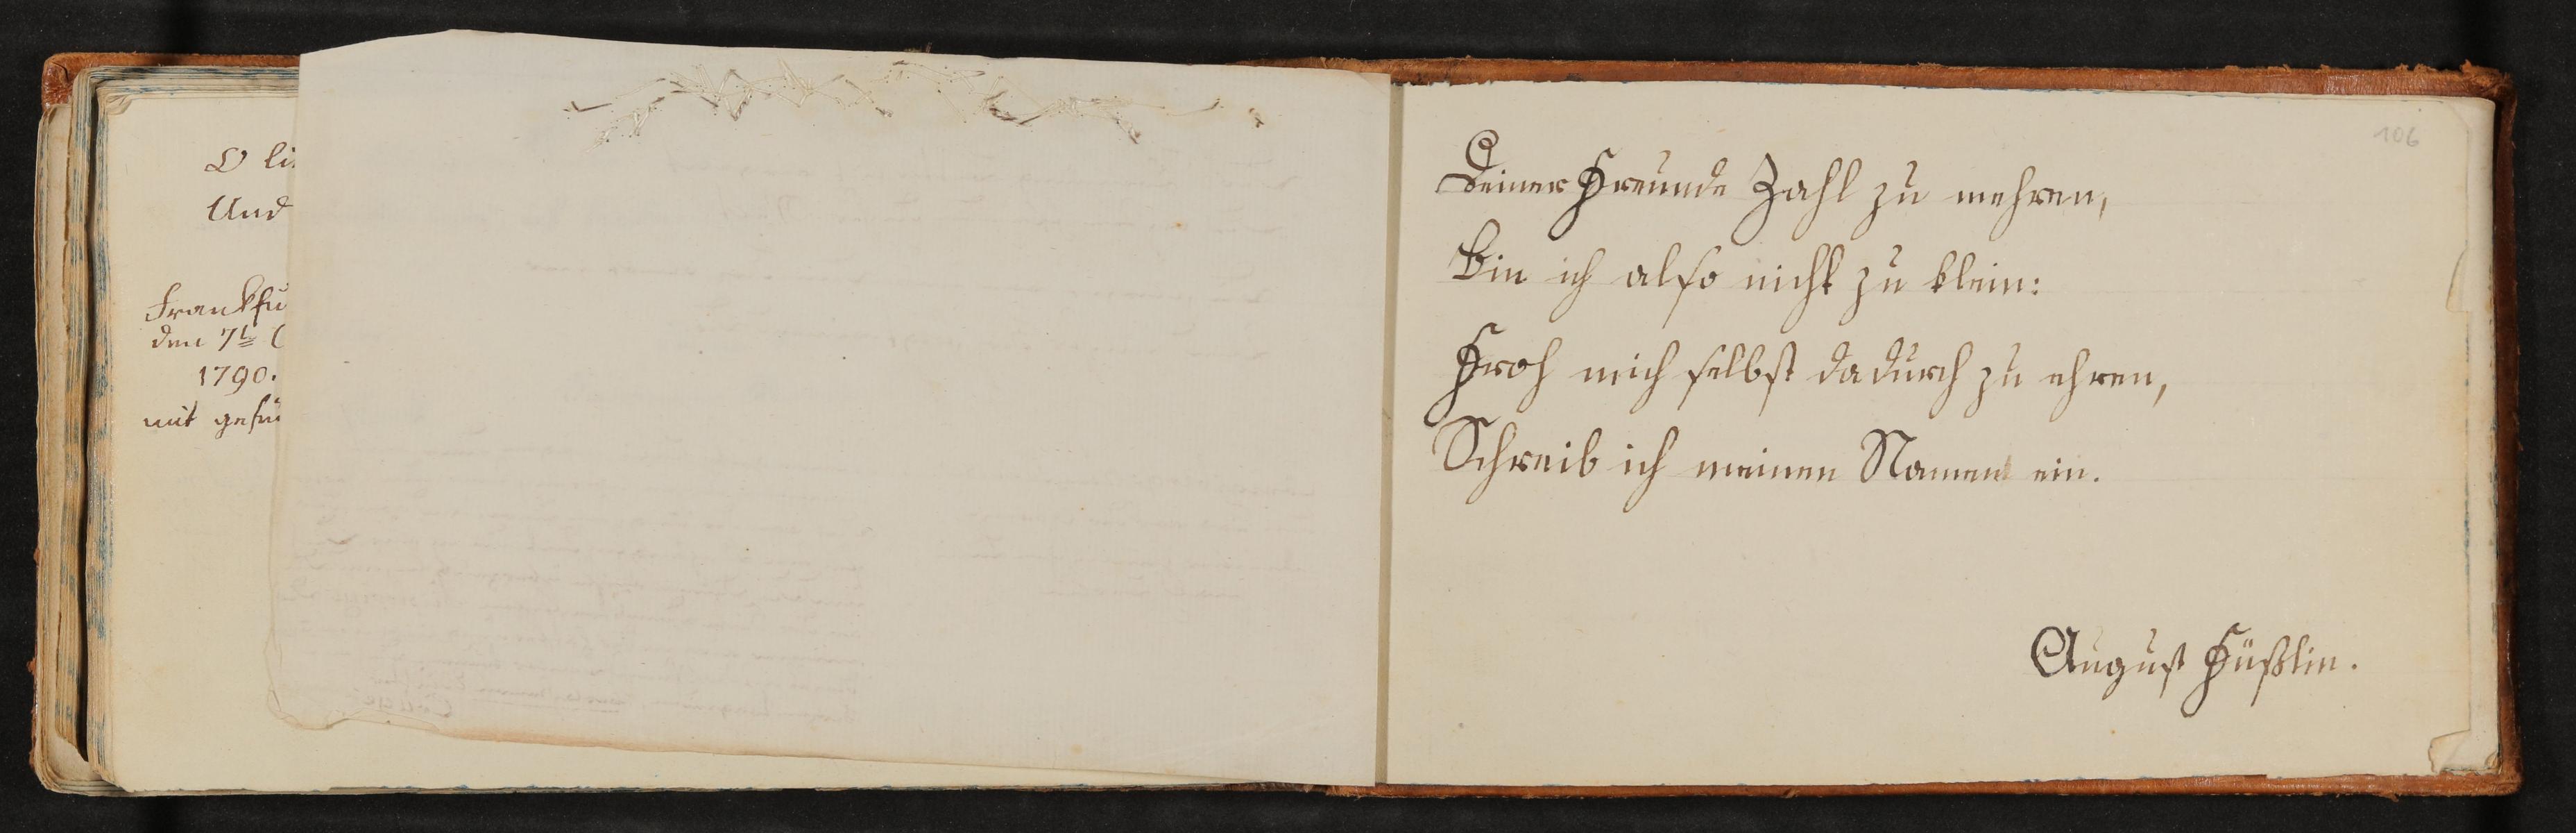 O
Und
Frankfu
den 7t
1790.
mit gefü
106
Deiner Freunde Zahl zu mehren,
Bin ich also nicht zu klein:
Froh mich selbst dadurch zu ehren,
Schreib ich meinen Namen ein.
August Füßlin.